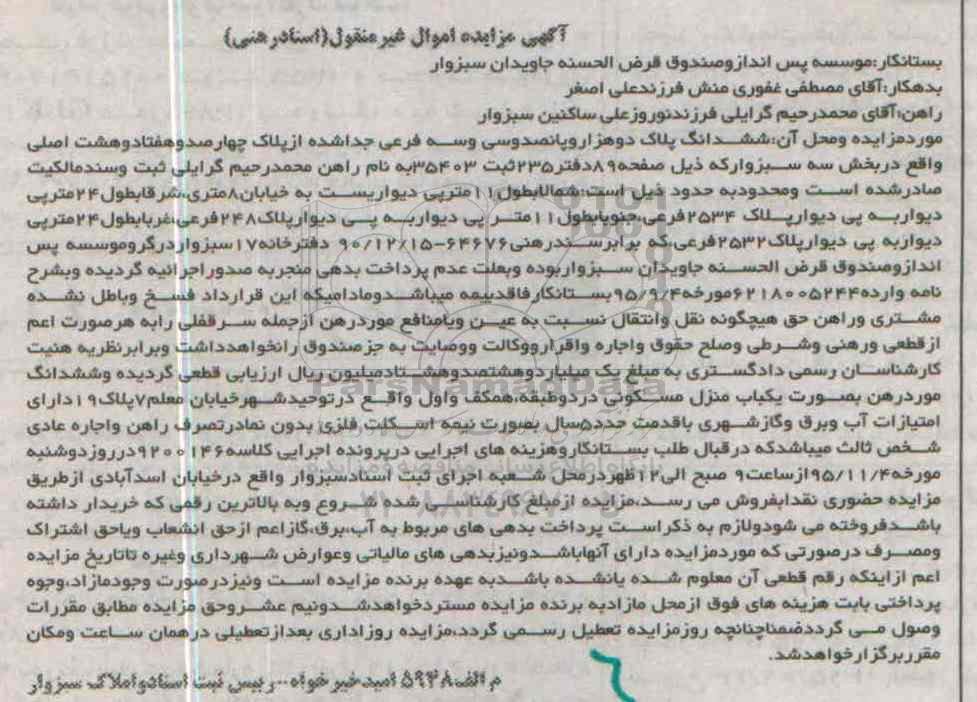 آگهی مزایده اموال غیرمنقول(اسنادرهنی)
بستانکار:موسسه پس اندازوصندوق قرض الحسنه جاویدان سبزوار
بدهکار:آقای مصطفی غفوری منش فرزندعلی اصغر
راهن:آقای محمدرحیم گرایلی فرزندنوروزعلی ساکنین سبزوار
موردمزایده ومحل آن:ششدانگ پلاک دوهزاروپانصدوسی وسه فرعی جداشده ازپلاک چهارصدوهفتادوهشت اصلی
واقع دربخش سه سبزوارکه ذیل صفحه۸۹دفتر۲۳۵ثبت ۳۵۴۰۳به نام راهن محمدرحیم گرایلی ثبت وسندمالکیت
صادرشده است ومحدودبه حدود ذیل است:شمالابطول۱۱مترپی دیواریست به خیابان۸متری،شرقابطول۲۴مترپی
دیواربه پی دیوارپلاک ۲۵۳۴فرعی،جنوبابطول۱۱متر پی دیواربه پی دیوارپلاک۲۴۸فرعی،غربابطول۲۴مترپی
دیواربه پی دیوارپلاک۲۵۳۲فرعی،که برابرسندرهنی۶۴۶۷۶-۹۰/۱۲/۱۵ دفترخانه۱۷سبزواردرگروموسسه پس
اندازوصندوق قرض الحسنه جاویدان سبزواربوده وبعلت عدم پرداخت بدهی منجربه صدوراجرائیه گردیده وبشرح
نامه وارده۶۲۱۸۰۰۵۲۴۴مورخه۹۵/۹/۴بستانکارفاقدبیمه میباشدومادامیکه این قرارداد فسخ وباطل نشده
مشتری وراهن حق هیچگونه نقل وانتقال نسبت به عین ویامنافع موردرهن ازجمله سرقفلی رابه هرصورت اعم
ازقطعی ورهنی وشرطی وصلح حقوق واجاره واقرارووکالت ووصایت به جزصندوق رانخواهدداشت وبرابرنظریه هنیت
کارشناسان رسمی دادگستری به مبلغ یک میلیاردوهشتصدوهشتادمیلیون ریال ارزیابی قطعی گردیده وششدانگ
موردرهن بصورت یکباب منزل مسکونی دردوطبقه،همکف واول واقع درتوحیدشهرخیابان معلم۷پلاک۱۹دارای
امتیازات آب وبرق وگازشهری باقدمت حدد۵سال بصورت نیمه اسکلت فلزی بدون نمادرتصرف راهن واجاره عادی
شخص ثالث میباشدکه درقبال طلب بستانکاروهزینه های اجرایی درپرونده اجرایی کلاسه۹۲۰۰۱۴۶درروزدوشنبه
مورخه۹۵/۱۱/۴ازساعت۹ صبح الی۱۲ظهردرمحل شعبه اجرای ثبت اسنادسبزوار واقع درخیابان اسدآبادی ازطریق
مزایده حضوری نقدابفروش می رسد،مزایده ازمبلغ کارشناسی شده شروع وبه بالاترین رقمی که خریدار داشته
باشدفروخته می شودولازم به ذکراست پرداخت بدهی های مربوط به آب،برق،گازاعم ازحق انشعاب ویاحق اشتراک
ومصرف درصورتی که موردمزایده دارای آنهاباشدونیزبدهی های مالیاتی وعوارض شهرداری وغیره تاتاریخ مزایده
اعم ازاینکه رقم قطعی آن معلوم شده یانشده باشدبه عهده برنده مزایده است ونیزدرصورت وجودمازاد،وجوه
پرداختی بابت هزینه های فوق ازمحل مازادبه برنده مزایده مستردخواهدشدونیم عشروحق مزایده مطابق مقررات
وصول می گرددضمناچنانچه روزمزایده تعطیل رسمی گردد،مزایده روزاداری بعدازتعطیلی درهمان ساعت ومکان
مقرربرگزارخواهدشد.
م الف۵۹۳۸ امیدخیرخواه--رییس ثبت اسنادواملاک سبزوار
ParsNamadData